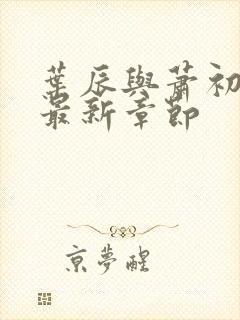 葉辰與蕭初
最新章節
京夢醒